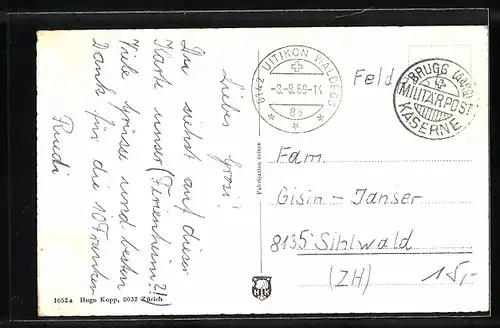 Liebes Grosi!
Du siehst auf dieser
Karte unser (Ferienheim?!)
Viele Grüsse und besten
Dank für die 10 Franken
Ruedi
1652a Hugo Kopp, 8032 Zürich
Fabrication suisse
8142 UITIKON WALDEGG
-3.-8.69-14
8a
Feld
BRUGG (AARG)
MILITÄRPOST
KASERNE
Fam.
Gisin-Janser
8135 Sihlwald
(ZH)
15,-